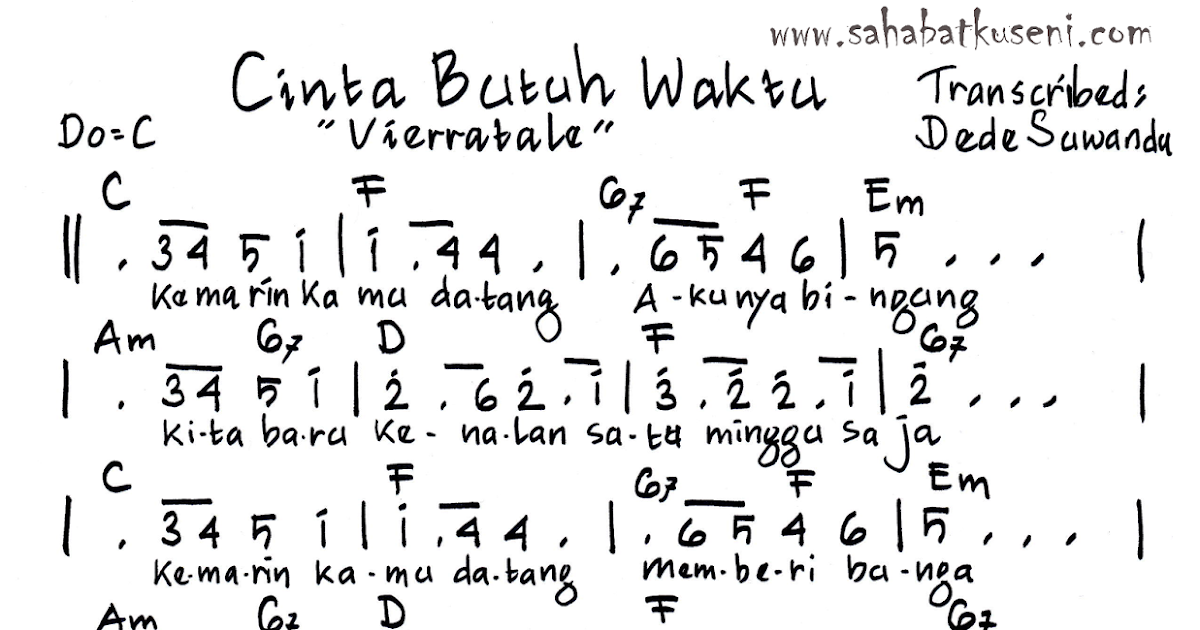 www.sahabatkuseni.com
Cinta Butuh Waktu
Transcribed:
Do=C
"Vierratale"
Dede Suwandu
C F G7 F Em
‖ . 3 4 5 i | i . 4 4 . | . 6 5 4 6 | 5 . . . |
Kemarin Ka mu da-tang A-kunya bi-ngung
Am G7 D F G7
| . 3 4 5 i | 2̇ . 6 2̇ . i | 3̇ . 2̇ 2̇ . i | 2̇ . . . |
Ki-ta ba.ru Ke-na.lan sa-tu minggu sa ja
C F G7 F Em
| . 3 4 5 i | i . 4 4 . | . 6 5 4 6 | 5 . . . |
Ke.ma.rin ka-mu da.tang mem.be.ri bu-nga
Am G7 D F G7